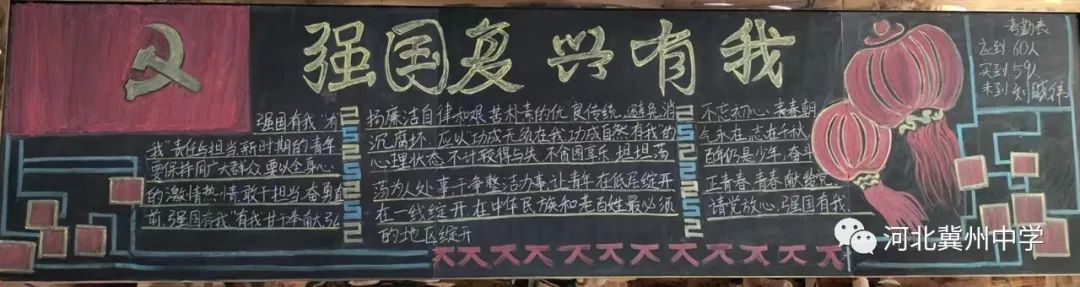 强国复兴有我
强国有我“为
我”责任与担当新时期的青年
要保持同广大群众要以全身心
的激情热情敢于担当奋勇直
前.强国有我“有我”甘于奉献,弘
扬廉洁自律和艰苦朴素的优良传统,避免消
沉腐坏.应以功成无须在我功成自然有我的
心理状态.不计较得与失.不贪图享乐.坦坦荡
荡为人处事干净整洁办事.让青年在低层绽开
在一线绽开.在中华民族和老百姓最必须
的地区绽开
不忘初心.青春朝
气永在.志在千秋
百年仍是少年,奋斗
正青春.青春献给党
请党放心,强国有我.
考勤表
应到60人
实到59人
未到
河北冀州中学